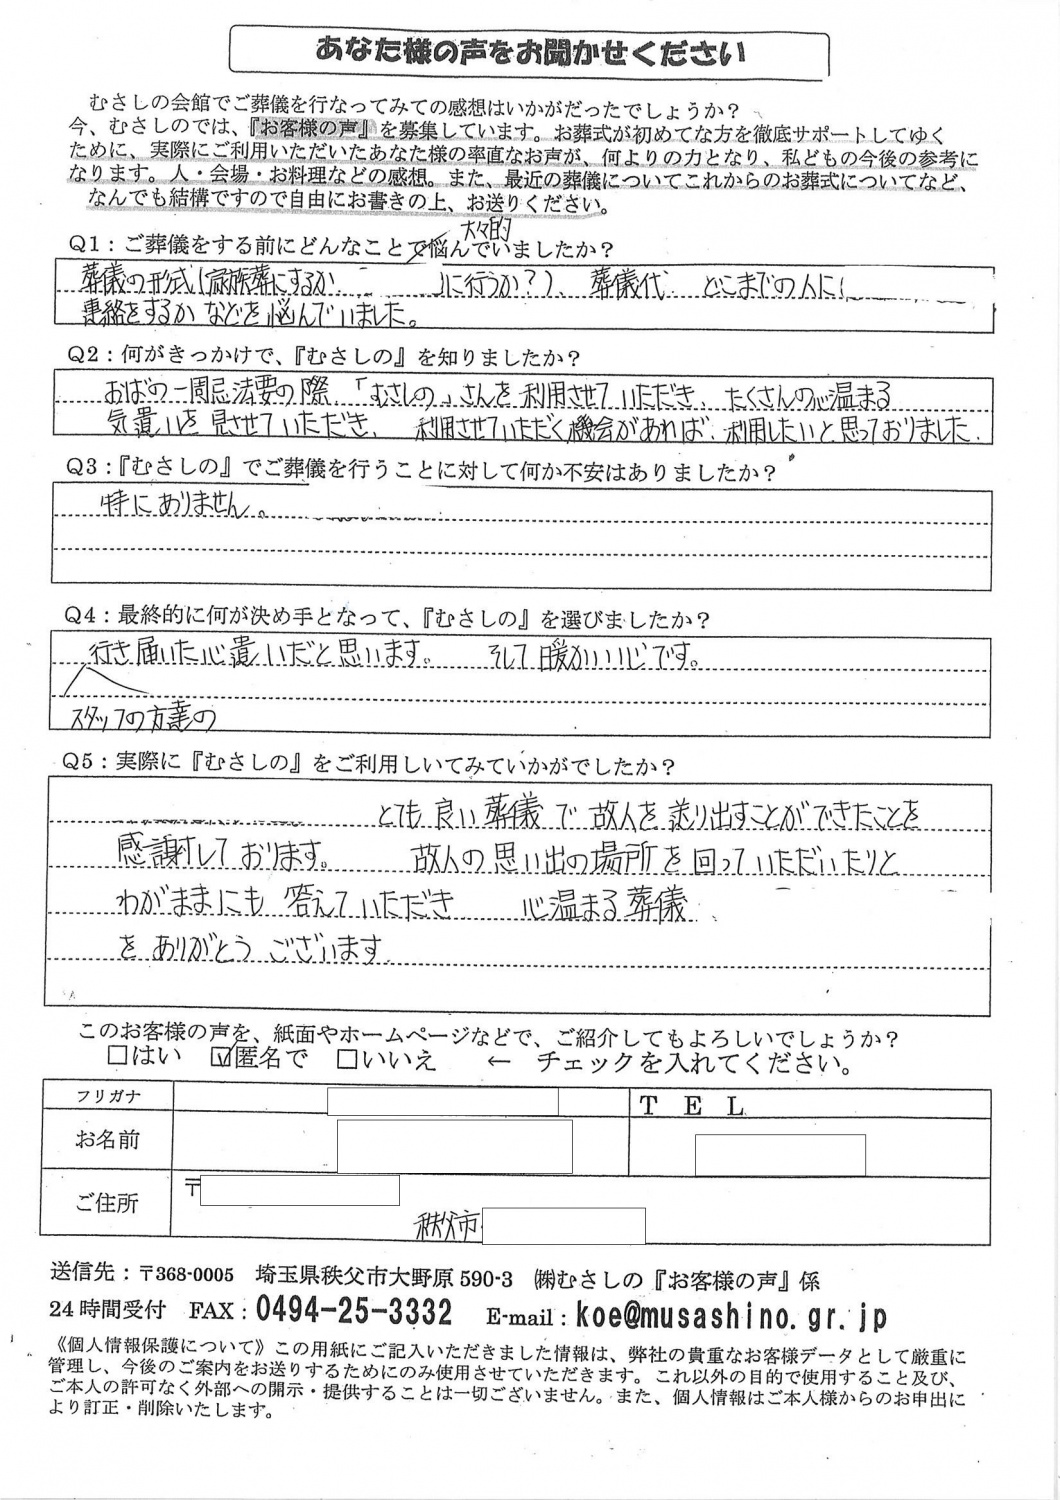 あなた様の声をお聞かせください
むさしの会館でご葬儀を行なってみての感想はいかがだったでしょうか?
今、むさしのでは、『お客様の声』を募集しています。お葬式が初めてな方を徹底サポートしてゆく
ために、実際にご利用いただいたあなた様の率直なお声が、何よりの力となり、私どもの今後の参考に
なります。人・会場・お料理などの感想。また、最近の葬儀についてこれからのお葬式についてなど、
なんでも結構ですので自由にお書きの上、お送りください。
Q1:ご葬儀をする前にどんなことで悩んでいましたか?
大々的
葬儀の形式(家族葬にするか に行うか?)、葬儀代 どこまでの人に
連絡をするかなどを悩んでいました。
Q2:何がきっかけで、『むさしの』を知りましたか?
おばの一周忌法要の際「むさしの」さんを利用させていただき、たくさんの心温まる
気遣いを見させていただき、利用させていただく機会があれば、利用したいと思っておりました.
Q3:『むさしの』でご葬儀を行うことに対して何か不安はありましたか?
特にありません。
Q4:最終的に何が決め手となって、『むさしの』を選びましたか?
行き届いた心遣いだと思います。 そして暖かい心です。
スタッフの方達の
Q5:実際に『むさしの』をご利用しいてみていかがでしたか?
とても良い葬儀で故人を送り出すことができたことを
感謝しております。 故人の思い出の場所を回っていただいたりと
わがままにも答えていただき 心温まる葬儀
をありがとうございます
このお客様の声を、紙面やホームページなどで、ご紹介してもよろしいでしょうか?
□はい ☑匿名で □いいえ ← チェックを入れてください。
フリガナ
TEL
お名前
ご住所
〒
秩父市
送信先:〒368-0005 埼玉県秩父市大野原590-3 ㈱むさしの『お客様の声』係
24時間受付 FAX:0494-25-3332 E-mail:koe@musashino.gr.jp
《個人情報保護について》この用紙にご記入いただきました情報は、弊社の貴重なお客様データとして厳重に
管理し、今後のご案内をお送りするためにのみ使用させていただきます。これ以外の目的で使用すること及び、
ご本人の許可なく外部への開示・提供することは一切ございません。また、個人情報はご本人様からのお申出に
より訂正・削除いたします。